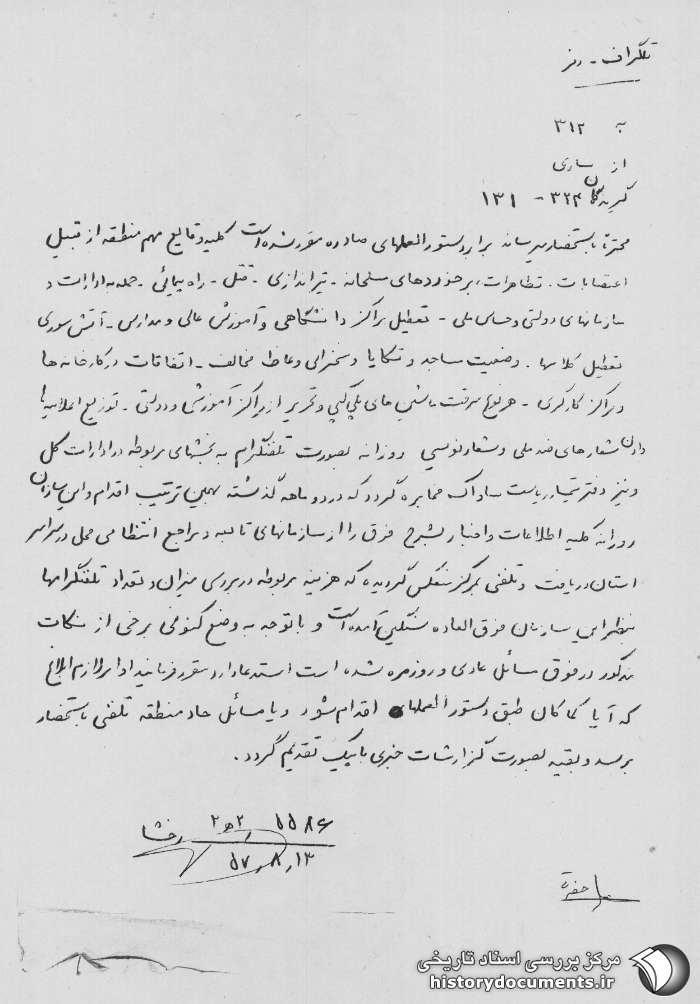 تلگراف - رمز
به ۳۱۲
از ساری
گیرندگان ۳۲۴ - ۱۳۱
محترماً باستحضار میرساند برابر دستورالعملهای صادره مقرر شده است کلیه وقایع مهم منطقه از قبیل
اعتصابات . تظاهرات ، برخوردهای مسلحانه - تیراندازی - قتل - راه پیمائی - حمله به ادارات و
سازمانهای دولتی و حساس ملی - تعطیل مراکز دانشگاهی و آموزش عالی و مدارس - آتش سوزی
تعطیل کلاسها . وضعیت مساجد و تکایا و سخنرانی وعاظ مخالف - اتفاقات در کارخانه ها
و مراکز کارگری - هر نوع سرقت ماشین های پلی کپی و تحریر از مراکز آموزشی و دولتی - توزیع اعلامیه یا
دادن شعارهای ضد ملی و شعارنویسی روزانه بصورت تلفنگرام به بخشهای مربوطه در ادارات کل
و نیز دفتر تیمسار ریاست ساواک مخابره گردد که در دو ماهه گذشته بهمین ترتیب اقدام و این سازمان
روزانه کلیه اطلاعات و اخبار بشرح فوق را از سازمانهای تابعه و مراجع انتظامی محل در سراسر
استان دریافت و تلفنی بمرکز منعکس گردیده که هزینه مربوطه در بررسی میزان و تعداد تلفنگرامها
منظر این سازمان فوق العاده سنگین آمده است و با توجه به وضع کنونی برخی از نکات
مذکور در فوق مسائل عادی و روزمره شده است استدعا دارد مقرر فرمایند اوامر لازم ابلاغ
که آیا کماکان طبق دستورالعملهای اقدام شود و یا مسائل حاد منطقه تلفنی باستحضار
برسد و بقیه بصورت گزارشات خبری با پیک تقدیم گردد .
۵۵۸۶ / ۲ ه ۲ رخشا
۵۷٫۸٫۱۳
مرکز بررسی اسناد تاریخی
historydocuments.ir